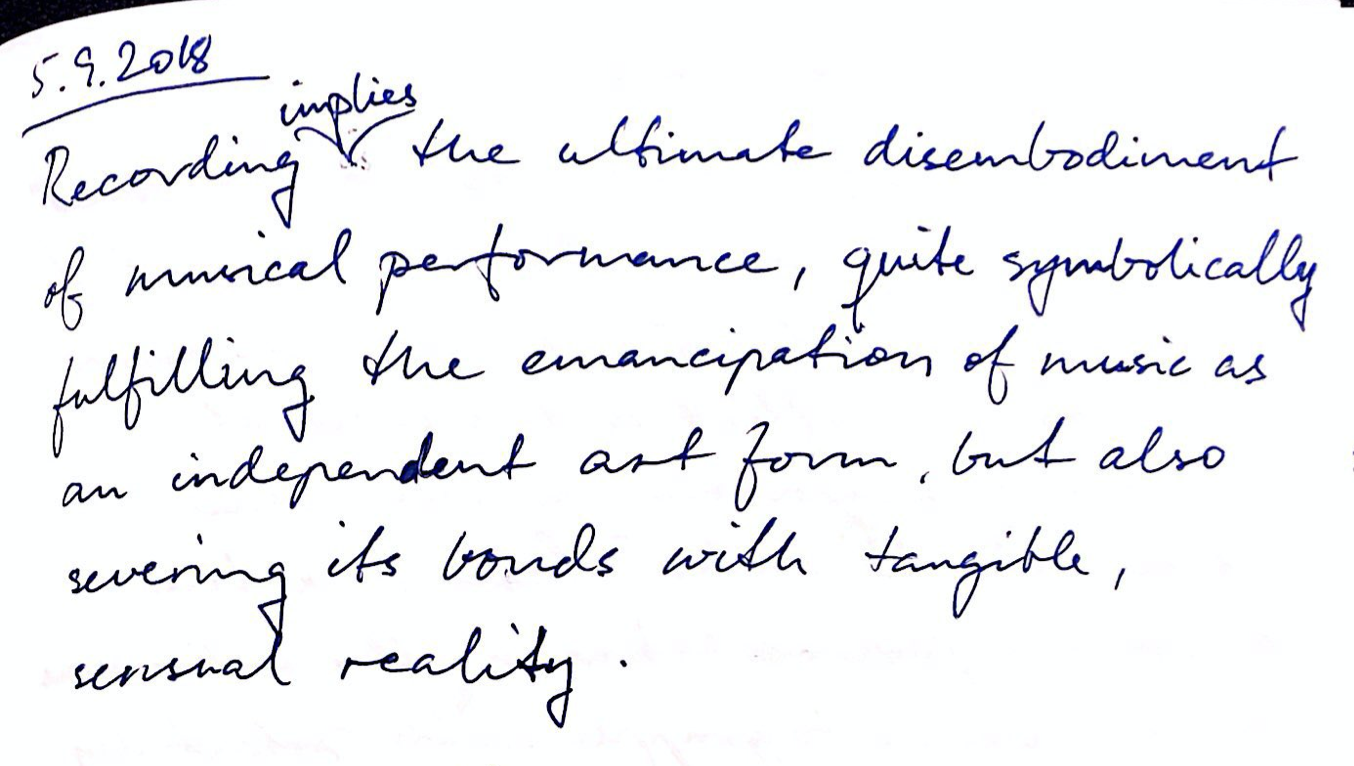 5.9.2018
Recording implies the ultimate disembodiment
of musical performance, quite symbolically
fulfilling the emancipation of music as
an independent art form, but also
severing its bonds with tangible,
sensual reality.